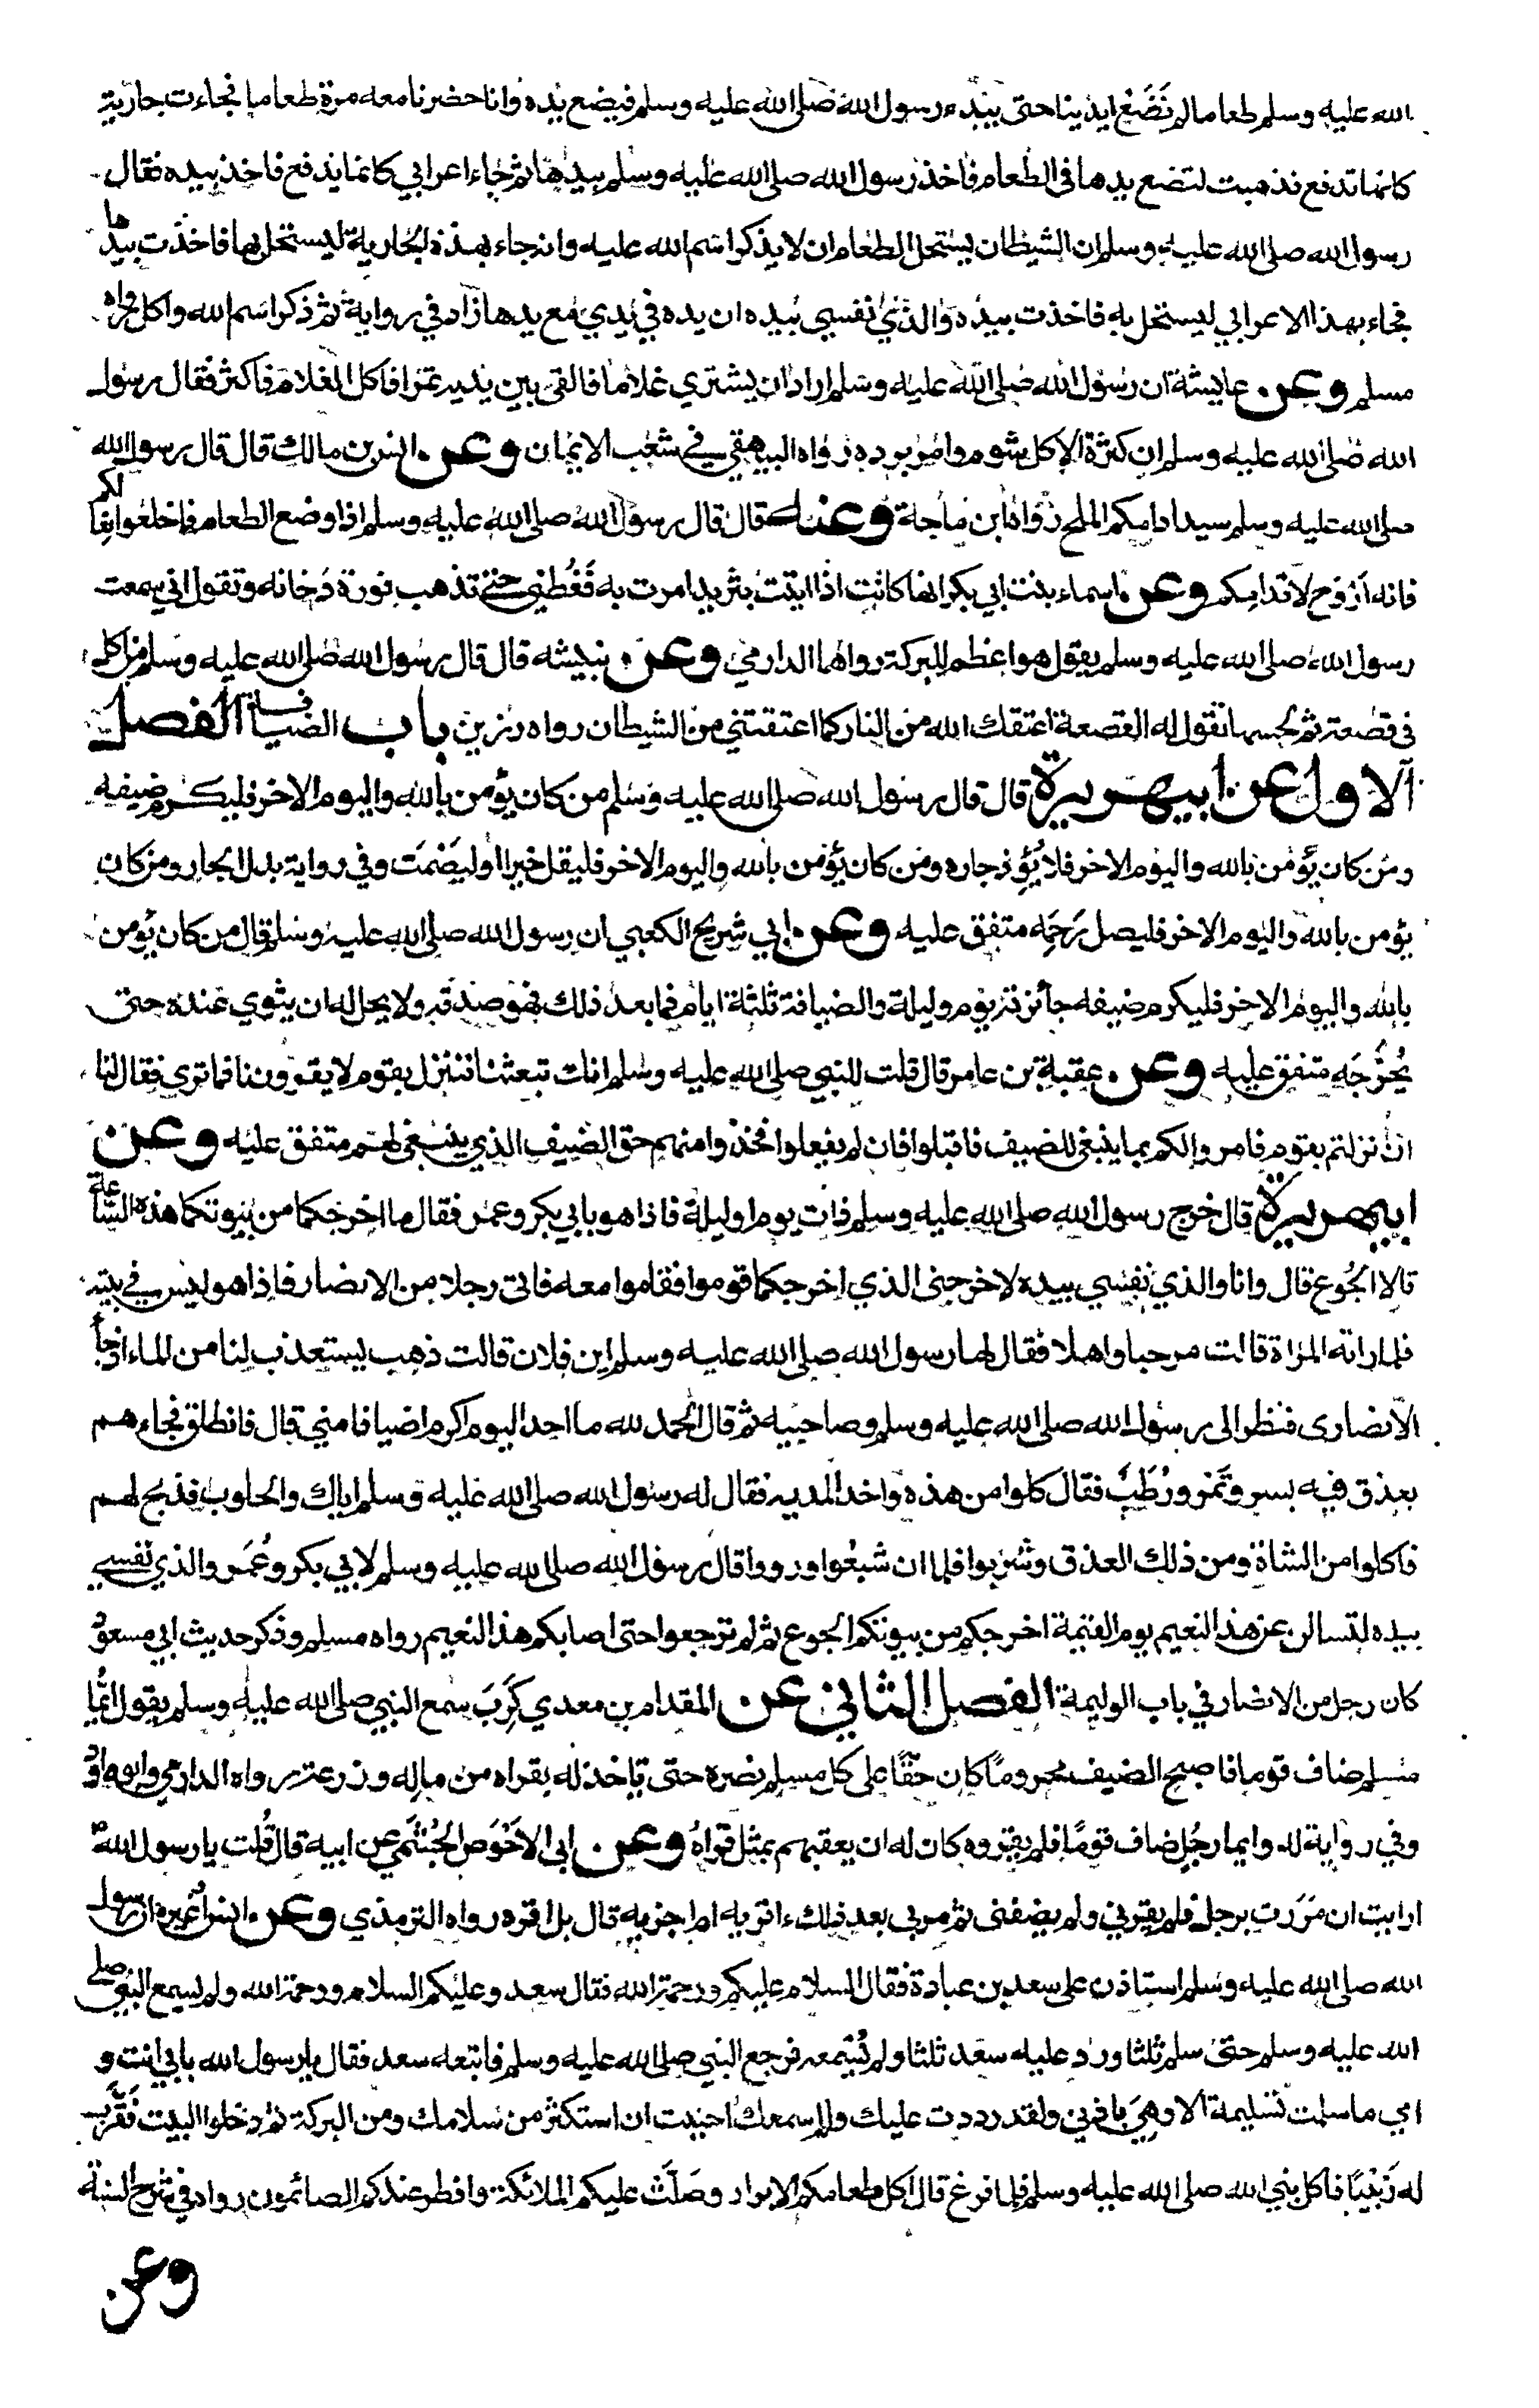 الله عليه وسلم طعاما لم نَضَعْ ايدينا حتى يبدء رسول الله صلى الله عليه وسلم فيضع يده وانا حضرنا معه مرة طعاما فجاءت جارية
كانما تدفع فذهبت لتضع يدها في الطعام فاخذ رسول الله صلى الله عليه وسلم بيدها ثم جاء اعرابي كانما يدفع فاخذ بيده فقال
رسول الله صلى الله عليه وسلم ان الشيطان يستحل الطعام ان لا يذكر اسم الله عليه وانه جاء بهذه الجارية ليستحل بها فاخذت بيدها
فجاء بهذا الاعرابي ليستحل به فاخذت بيده والذي نفسي بيده ان يده في يدي مع يدها زاد في رواية ثم ذكر اسم الله واكل رواه
مسلم وعن عايشة ان رسول الله صلى الله عليه وسلم اراد ان يشتري غلاما فالقى بين يديه تمرا فاكل الغلام فاكثر فقال رسول
الله صلى الله عليه وسلم ان كثرة الاكل شوم وامر برده رواه البيهقي في شعب الايمان وعن انس بن مالك قال قال رسول الله
صلى الله عليه وسلم سيد ادامكم الملح رواه ابن ماجة وعنه قال قال رسول الله صلى الله عليه وسلم اذا وضع الطعام فاخلعوا نعالكم
فانه اروح لاقدامكم وعن اسماء بنت ابي بكر انها كانت اذا اتيت بثريد امرت به فغُطّي حتى تذهب فورة دخانه وتقول اني سمعت
رسول الله صلى الله عليه وسلم يقول هو اعظم للبركة رواهما الدارمي وعن نبيشه قال قال رسول الله صلى الله عليه وسلم من اكل
في قصعة ثم لحسها تقول له القصعة اعتقك الله من النار كما اعتقتني من الشيطان رواه رزين باب الضيافة الفصل
الاول عن ابي هريرة قال قال رسول الله صلى الله عليه وسلم من كان يؤمن بالله واليوم الاخر فليكرم ضيفه
ومن كان يؤمن بالله واليوم الاخر فلا يُؤذ جاره ومن كان يؤمن بالله واليوم الاخر فليقل خيرا او ليصْمت وفي رواية بدل الجار ومن كان
يؤمن بالله واليوم الاخر فليصل رَحِمَه متفق عليه وعن ابي شريح الكعبي ان رسول الله صلى الله عليه وسلم قال من كان يؤمن
بالله واليوم الاخر فليكرم ضيفه جائزته يوم وليلة والضيافة ثلثة ايام فما بعد ذلك فهو صدقة ولا يحل له ان يثوي عنده حتى
يُحَرِّجَه متفق عليه وعن عقبة بن عامر قال قلت للنبي صلى الله عليه وسلم انك تبعثنا فننزل بقوم لا يقروننا فما ترى فقال لنا
ان نزلتم بقوم فامروا لكم بما ينبغي للضيف فاقبلوا فان لم يفعلوا فخذوا منهم حق الضيف الذي ينبغي لهم متفق عليه وعن
ابي هريرة قال خرج رسول الله صلى الله عليه وسلم ذات يوم او ليلة فاذا هو بابي بكر وعمر فقال ما اخرجكما من بيوتكما هذه الساعة
قالا الجُوع قال وانا والذي نفسي بيده لاخرجني الذي اخرجكما قوموا فقاموا معه فاتى رجلا من الانصار فاذا هو ليس في بيته
فلما راته المراة قالت مرحبا واهلا فقال لها رسول الله صلى الله عليه وسلم اين فلان قالت ذهب يستعذب لنا من الماء اذ جاء
الانصارى فنظر الى رسول الله صلى الله عليه وسلم وصاحبيه ثم قال الحمد لله ما احد اليوم اكرم اضيافا مني قال فانطلق فجاءهم
بعذق فيه بسر وتَمر ورُطَب فقال كلوا من هذه واخذ المدية فقال له رسول الله صلى الله عليه وسلم اياك والحلوب فذبح لهم
فاكلوا من الشاة ومن ذلك العذق وشربوا فلما ان شبعُوا ورووا قال رسول الله صلى الله عليه وسلم لابي بكر وعُمَر والذي نفسي
بيده لتسالن عن هذا النعيم يوم القيمة اخرجكم من بيوتكم الجوع ثم لم ترجعوا حتى اصابكم هذا النعيم رواه مسلم وذكر حديث ابي مسعود
كان رجل من الانصار في باب الوليمة الفصل الثاني عن المقدام بن معدي كَرِبَ سمع النبي صلى الله عليه وسلم يقول ايُّما
مسلم ضاف قوما فاصبح الضيف محروماً كان حقّا على كل مسلم نصره حتى ياخذ له بقراه من ماله وزرعه رواه الدارمي وابو داود
وفي رواية له وايما رجُلٍ ضاف قوماً فلم يقروه كان له ان يعقبهم بمثل قراهُ وعن ابي الاحْوَص الجُشَمي عن ابيه قال قُلت يا رسول الله
ارايت ان مَرَرت برجل فلم يقرني ولم يضفنى ثم مر بي بعد ذلك ءاقريه ام اجزيه قال بل اقره رواه الترمذي وعن انس او غيره ان رسول
الله صلى الله عليه وسلم استاذن على سعد بن عبادة فقال السلام عليكم ورحمة الله فقال سعد وعليكم السلام ورحمة الله ولم يسمع النبي صلى
الله عليه وسلم حتى سلم ثلثا ورد عليه سعد ثلثا ولم يُسْمعه فرجع النبي صلى الله عليه وسلم فاتبعه سعد فقال يا رسول الله بابي انت و
امي ما سلمت تسليمة الا وهِيَ باذني ولقد رددت عليك ولم اسمعك احببت ان استكثر من سلامك ومن البركة ثم دخلوا البيت فَقَرَّبَ
له زَبْيباً فاكل نبي الله صلى الله عليه وسلم فلما فرغ قال اكل طعامكم الابرار وصَلَّتْ عليكم الملائكة وافطر عندكم الصائمون رواه في شرح السنة
وعن